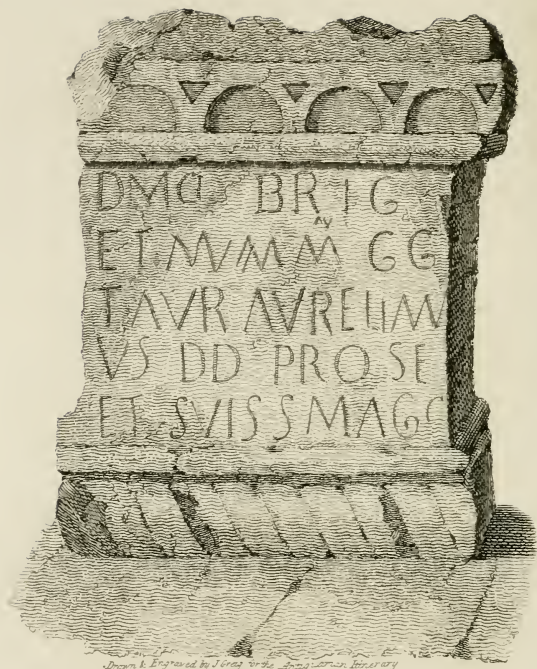 DMCI BRIG
ET NVM M AV GG
T AVR AVRELIAN
VS DD PRO SE
ET SVIS S MAG S
Drawn & Engraved by J. Greig for the Antiquarian Itinerary